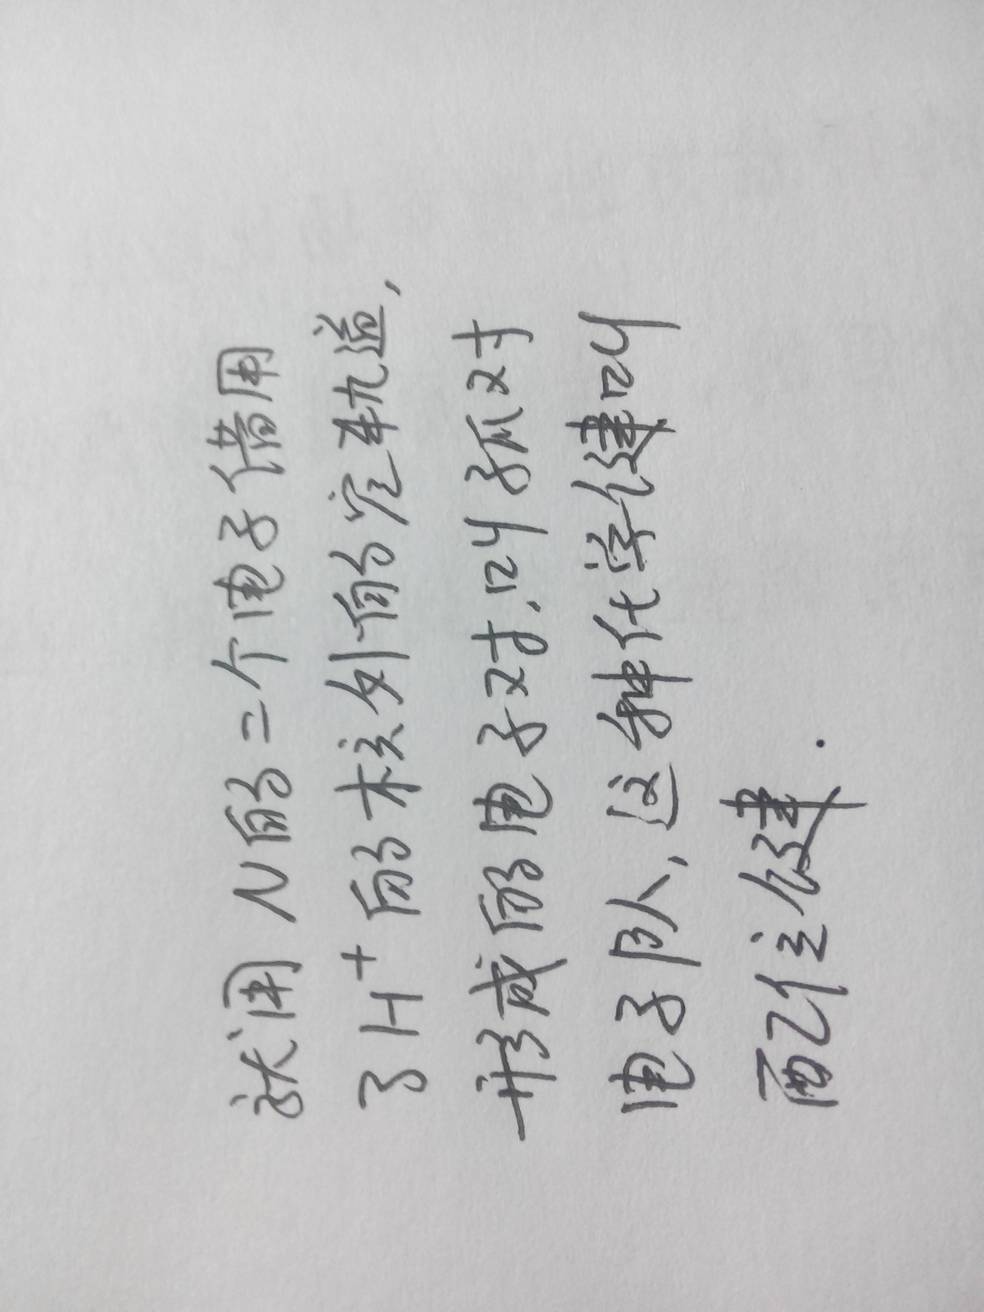 就用N的二个电子借用
了H⁺的核外的空轨道，
形成的电子对，叫孤对
电子队，这种化学健叫
配位健．